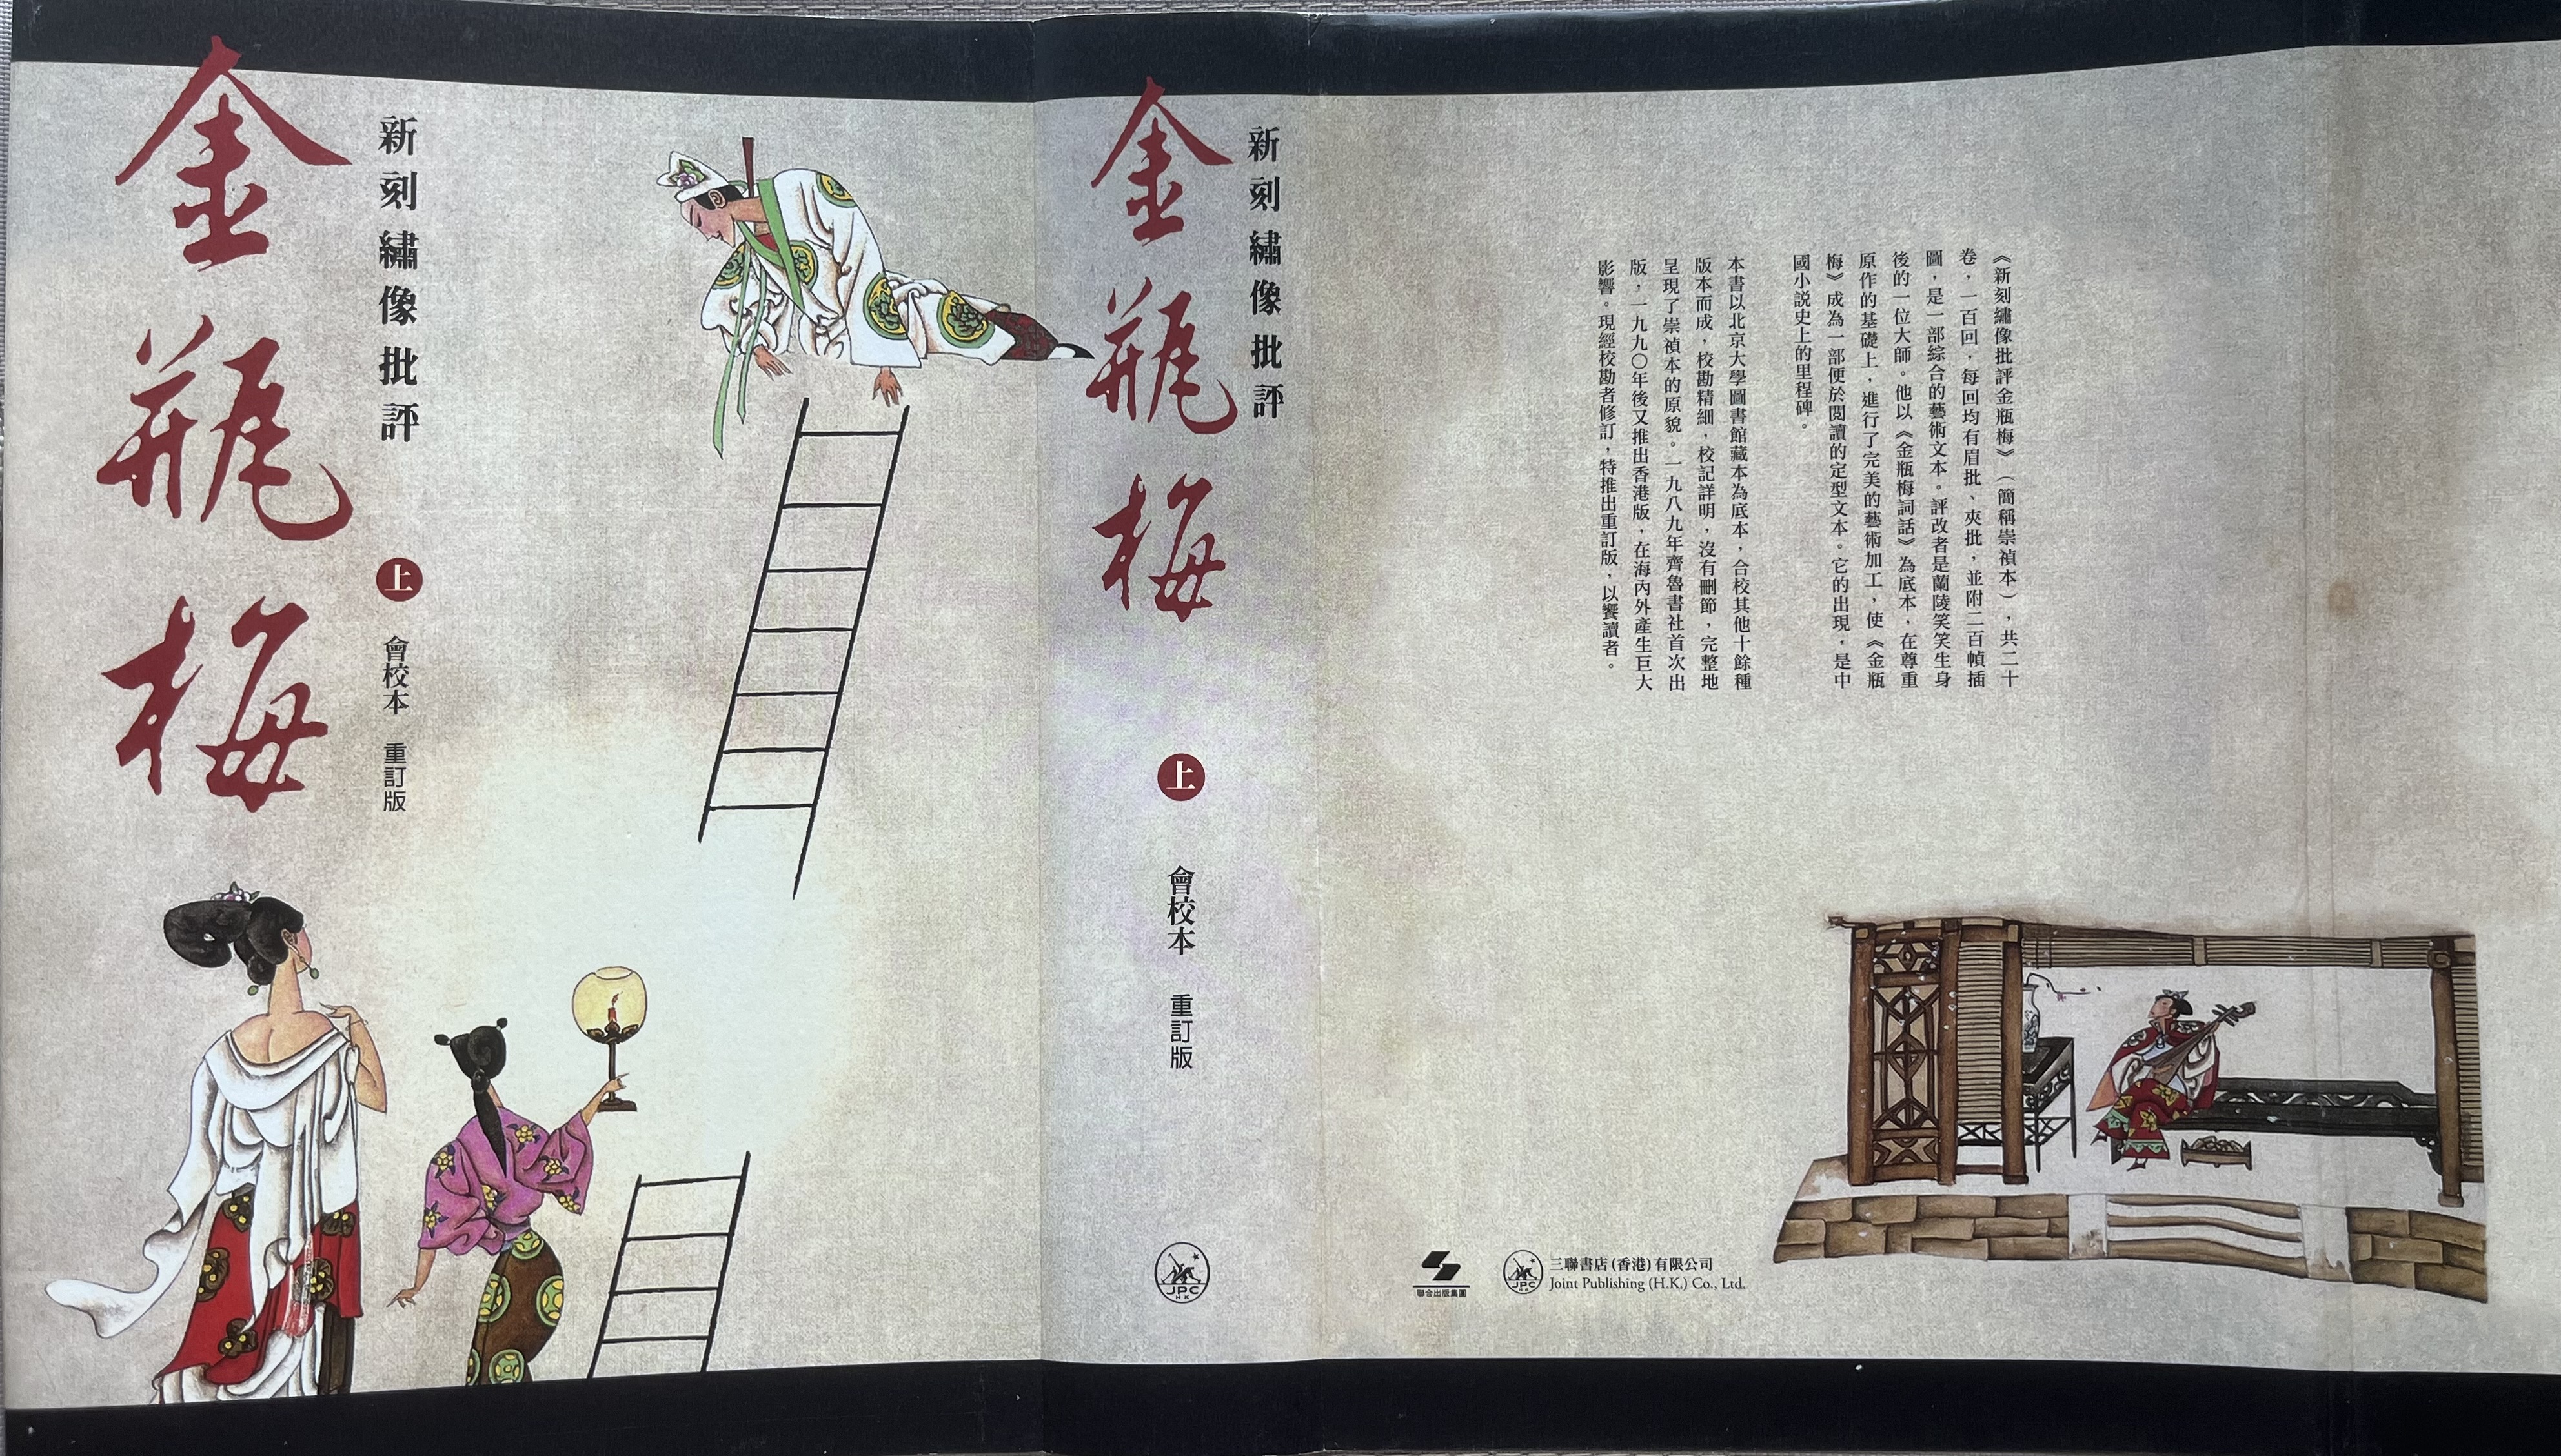 金瓶梅
新刻繡像批評
上
會校本 重訂版
金瓶梅
新刻繡像批評
上
會校本 重訂版
JPC
HK
《新刻繡像批評金瓶梅》（簡稱崇禎本），共二十
卷，一百回，每回均有眉批、夾批，並附二百幀插
圖，是一部綜合的藝術文本。評改者是蘭陵笑笑生身
後的一位大師。他以《金瓶梅詞話》為底本，在尊重
原作的基礎上，進行了完美的藝術加工，使《金瓶
梅》成為一部便於閱讀的定型文本。它的出現，是中
國小説史上的里程碑。
本書以北京大學圖書館藏本為底本，合校其他十餘種
版本而成，校勘精細，校記詳明，沒有刪節，完整地
呈現了崇禎本的原貌。一九八九年齊魯書社首次出
版，一九九〇年後又推出香港版，在海內外產生巨大
影響。現經校勘者修訂，特推出重訂版，以饗讀者。
聯合出版集團
JPC
三聯書店(香港)有限公司
Joint Publishing (H.K.) Co., Ltd.